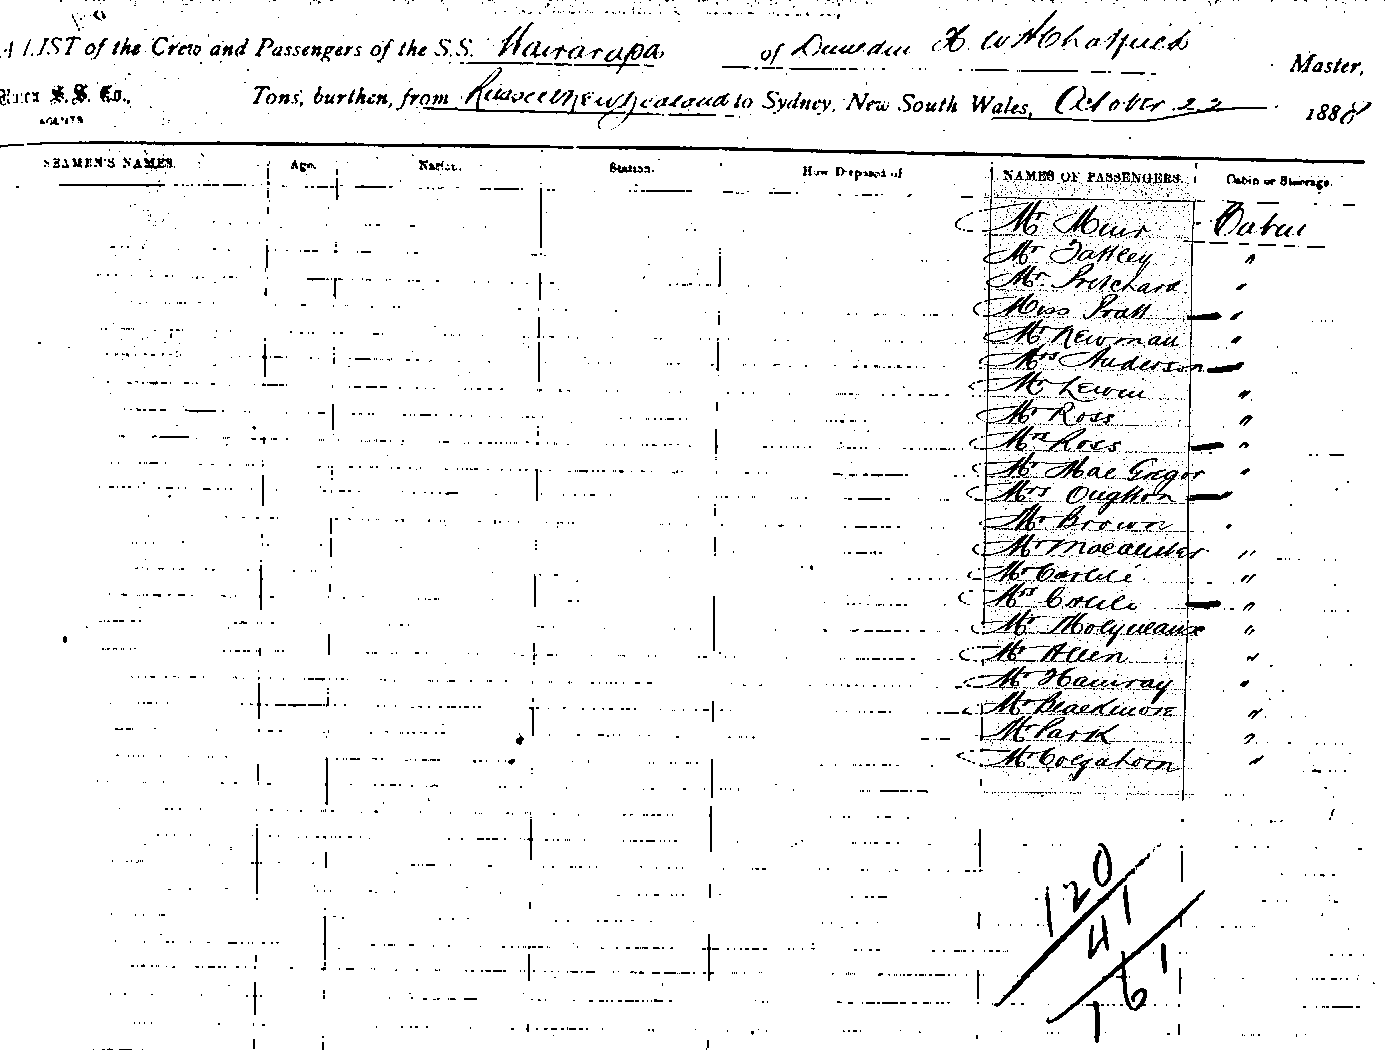 A LIST of the Crew and Passengers of the S.S. Wairarapa of Dunedin H. W. H. Chatfield Master,
Union S. S. Co., Tons, burthen, from Russell New Zealand to Sydney, New South Wales, October 22 1888
AGENTS
SEAMEN'S NAMES. Age. Nation. Station. How Disposed of NAMES OF PASSENGERS. Cabin or Steerage.
Mr Muir Cabin
Mr Oakley "
Mr Pritchard "
Miss Pratt "
Mr Newman "
Mrs Anderson
Mr Lewin "
Mr Ross "
Mrs Ross "
Mr Mac Gregor "
Mrs Oughton "
Mr Brown "
Mr Macalister "
Mr Carlile "
Mrs Carlile "
Mr Molyneaux "
Mr Allen "
Mr "
Mr Blackmore "
Mr Park "
Mr Colgahoun "
120
41
161